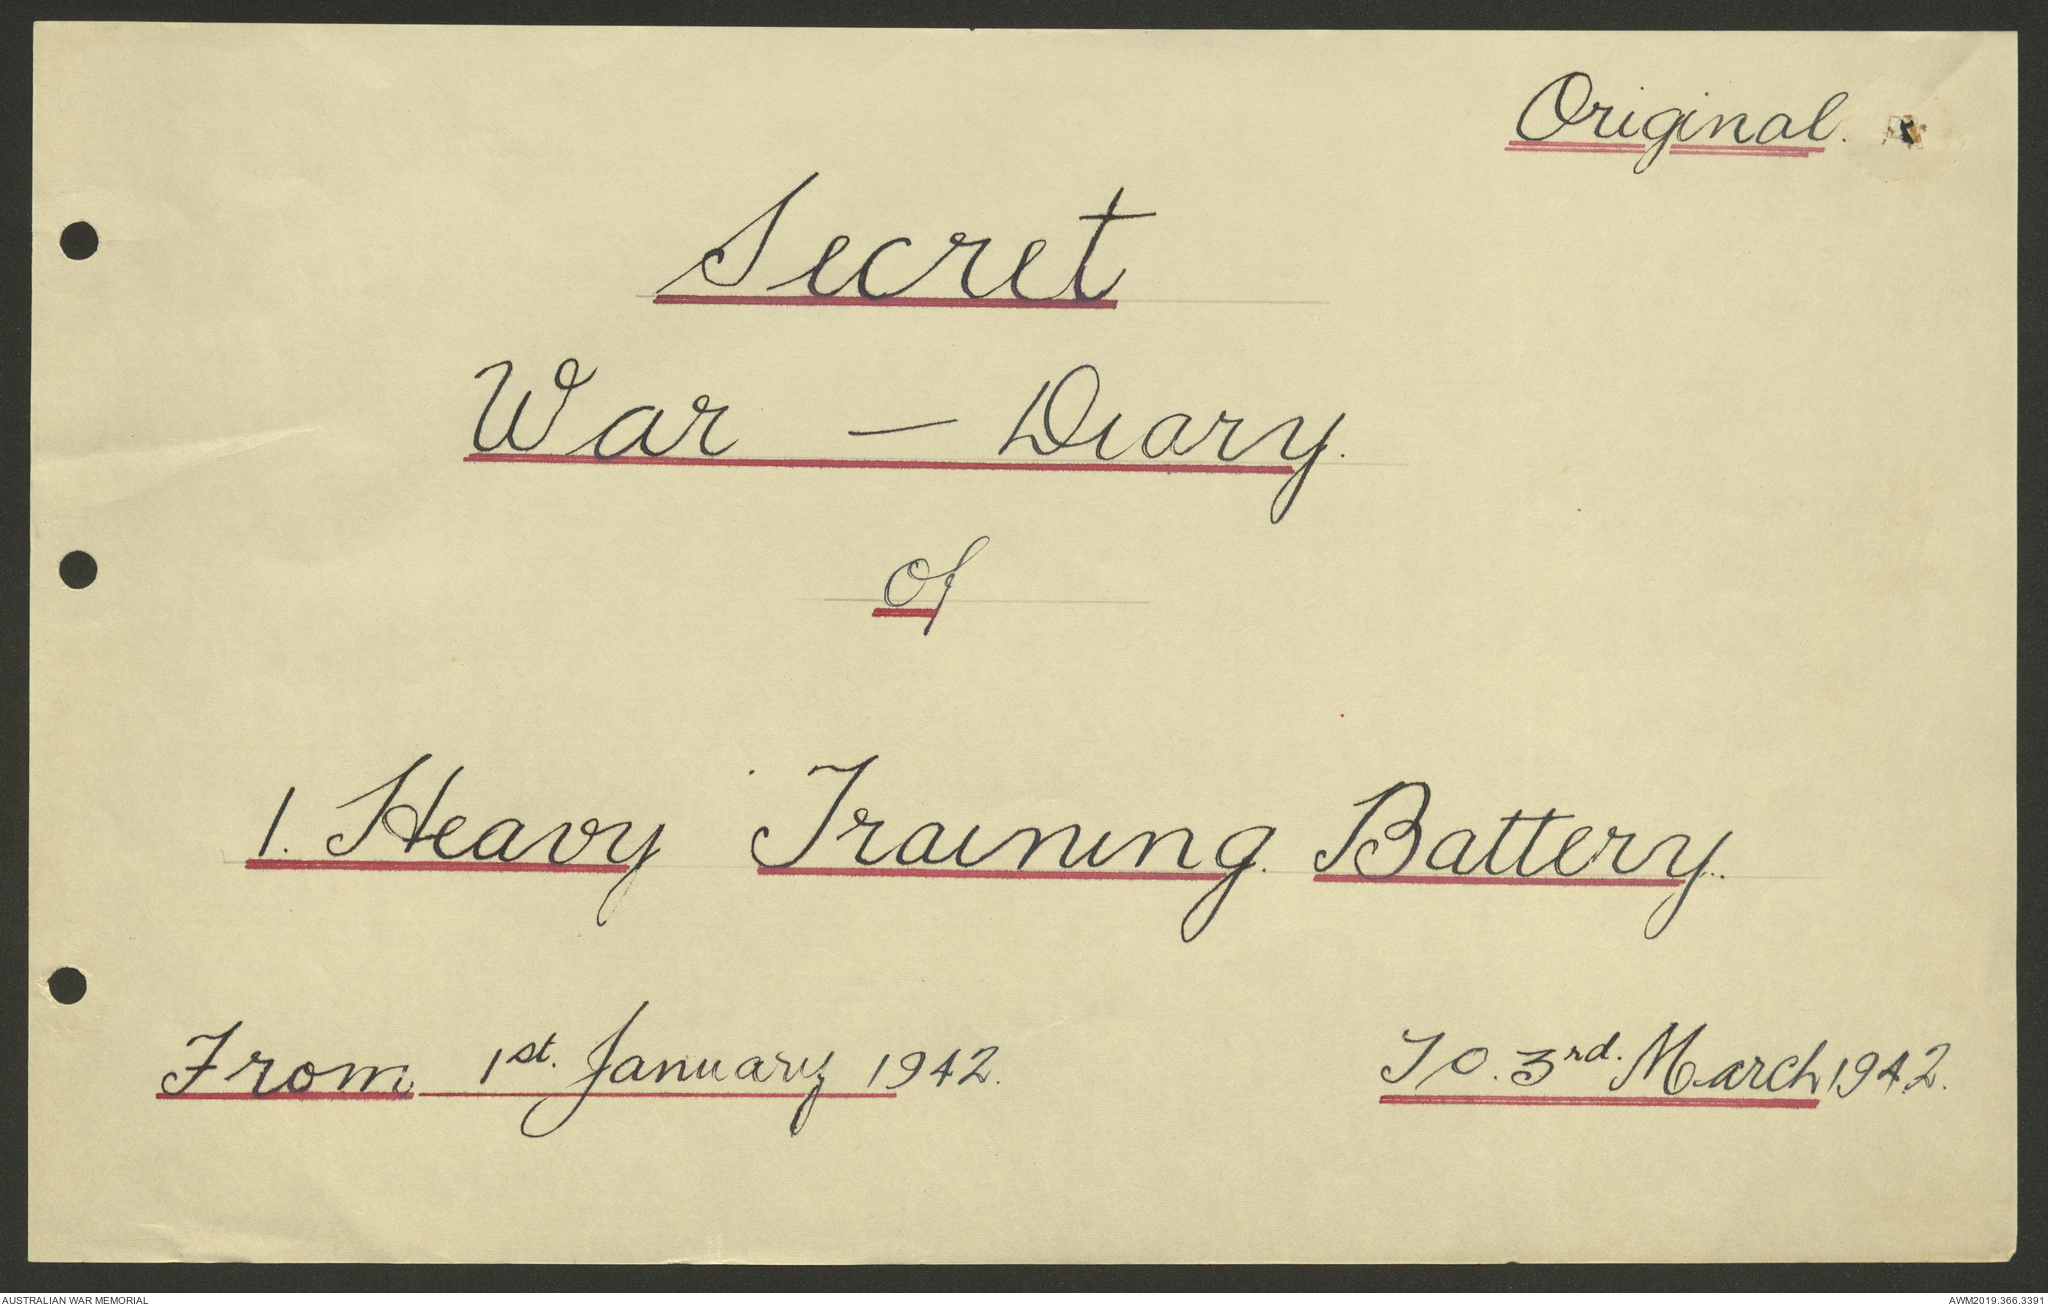 Original.
Secret
War – Diary.
of
1. Heavy Training. Battery.
From 1st. January 1942. To. 3rd. March 1942.
AUSTRALIAN WAR MEMORIAL AWM2019.366.3391